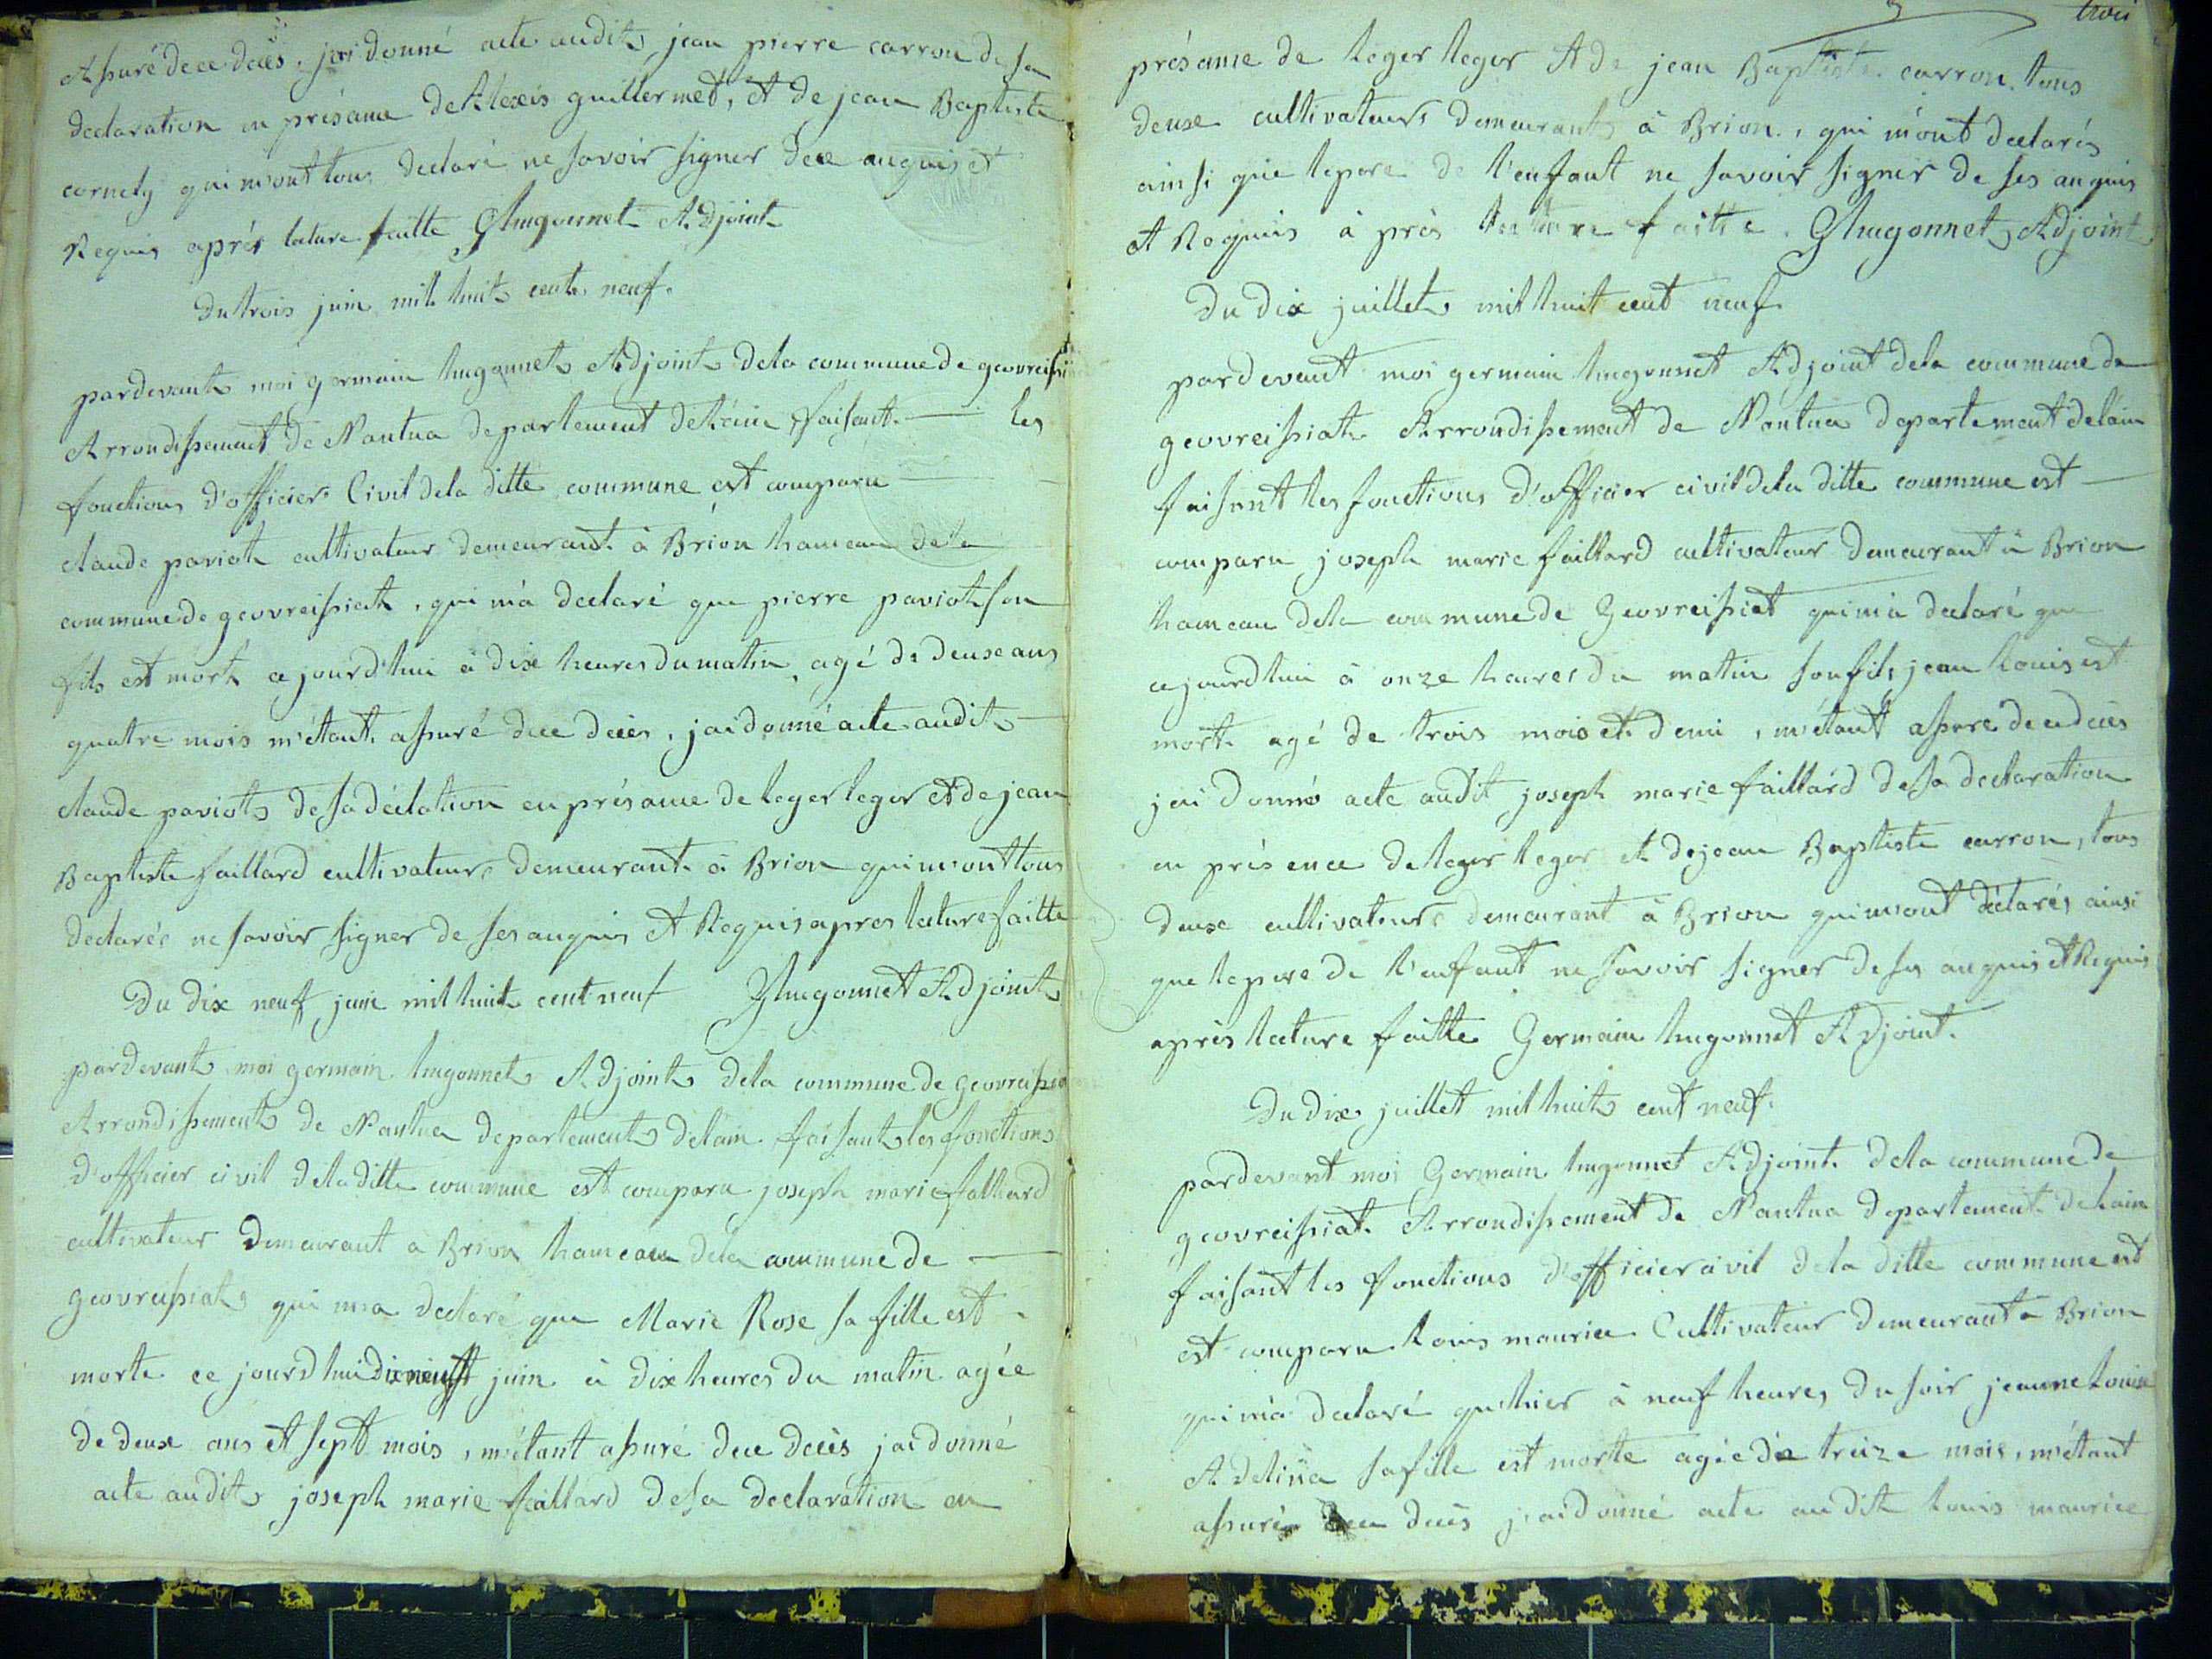 Assuré de ce deces, jai donné acte audit jean pierre carron de sa
declaration en présance de Aléxis guillermet, et de jean Baptiste
cornety qui m'ont tous declaré ne savoir signer de ce anquis et
Requis aprés lature faitte GHugonnet Adjoint
Du trois juin mil huit cent neuf.
pardevant moi germain hugonnet Adjoint dela commune de geovreissiat
Arrondissement de Nantua departement de L'ain faisant les
fonctions d'officier Civil dela ditte commune est comparu
claude paviot cultivateur demeurant à Brion hameau dela
commune de geovreissiat, qui m'a declaré que pierre paviot son
fils est mort ajourd'hui à dix heures du matin, agé de deux ans
quatre mois m'étant assuré de ce deces, jai donné acte audit
claude paviot de sa déclation en présance de leger leger et de jean
Baptiste faillard cultivateurs demeurant à Brion qui m'ont tous
declarés ne savoir signer de ses anquis et Requis apres lature faitte
Du dix neuf juin mil huit cent neuf GHugonnet Adjoint
pardevant moi germain hugonnet Adjoint dela commune de geovreissiat
Arrondissement de Nantua departement delain faisant les fonctions
d'officier civil dela ditte commune est comparu joseph marie faillard
cultivateur demeurant a Brion hameau dela commune de
geovreissiat qui m'a declaré que Marie Rose sa fille est
morte ce jourd'hui dix neuf juin à dix heures du matin agée
de deux ans et sept mois, m'étant assuré de ce decès jai donné
acte audit joseph marie faillard de sa declaration en
3 trois
présance de leger leger et de jean Baptiste carron, tous
deux cultivateurs demeurants à Brion, qui m'ont declarés
ainsi que le pere de l'enfant ne savoir signer de ses anquis
et Requis à près lecture faitte. GHugonnet Adjoint
Du dix juillet mil huit cent neuf
pardevant moi germain hugonnet Adjoint dela commune de
geovreissiat Arrondissement de Nantua departement delain
faisant les fonctions d'officier civil dela ditte commune est
comparu joseph marie faillard cultivateur demeurant à Brion
hameau dela commune de Geovreissiat qui m'à declaré que
ajourdhui à onze heures du matin son fils jean Louis est
mort agé de trois mois et demi, m'étant assuré de ce deces
jai donné acte audit joseph marie faillard de sa declaration
en présence de leger leger et de jean Baptiste carron, tous
deux cultivateurs demeurant à Brion qui m'ont déclarés ainsi
que le pere de l'enfant ne savoir signer de ses anquis et Requis
après lecture faitte Germain hugonnet Adjoint.
Du dix juillet mil huit cent neuf.
pardevant moi Germain hugonnet Adjoint dela commune de
geovreissiat Arrondissement de Nantua departement de Lain
faisant les fonctions d'officier civil dela ditte commune est
est comparu Louis maurice Cultivateur demeurant a Brion
qui m'à declaré qu'hier à neuf heures du soir jeanne Louise
Adelina sa fille est morte agée de treize mois, m'étant
assuré de ce decès j'ai donné acte audit Louis maurice